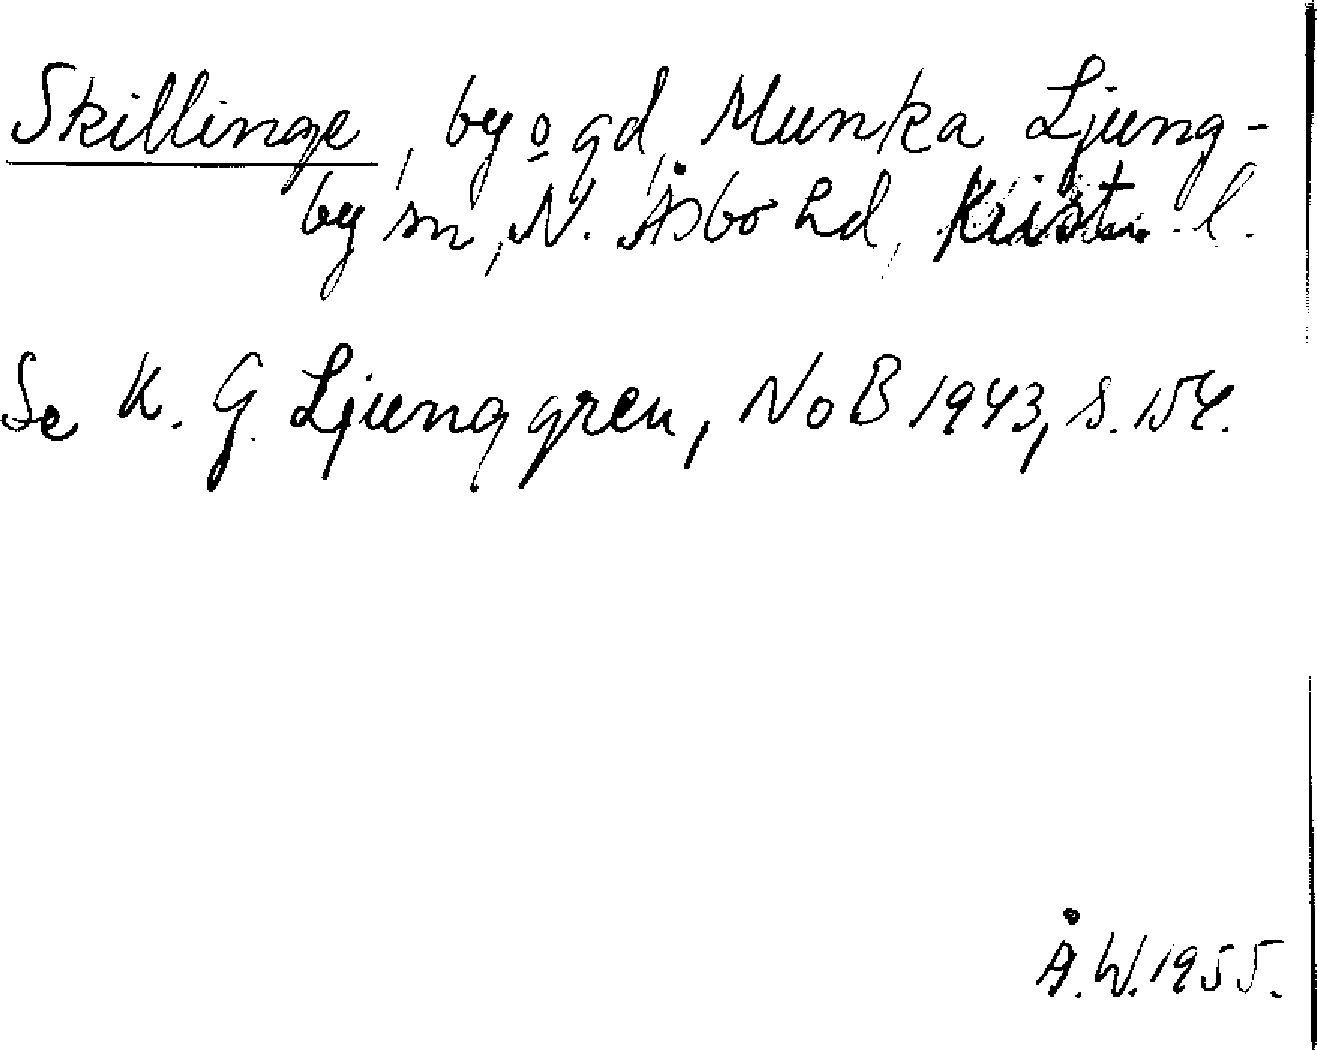 Skillinge, by o gd, Munka Ljung-
by sn, N. Åsbo hd, Kristu. l.
Se K. G. Ljunggren, NoB 1943, s. 154.
Å.W. 1955.